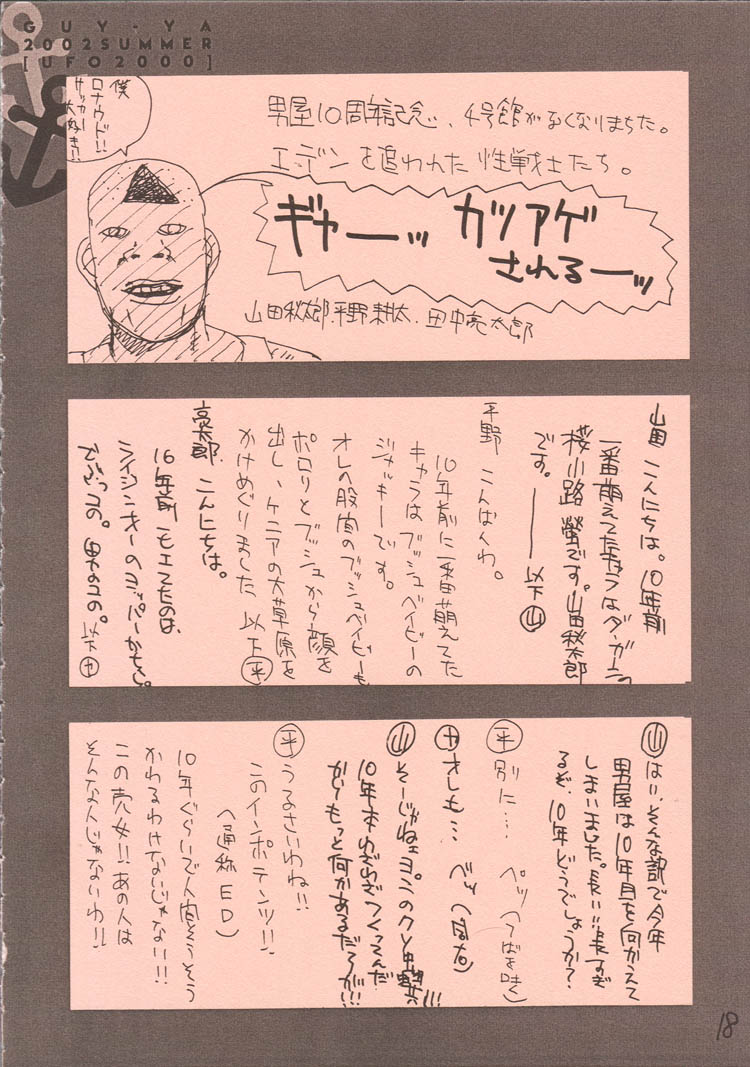 GUY-YA
2002SUMMER
[UFO2000]
僕
ロナウド!!
サッカー
大好き!!
男屋10周年記念、4号館がなくなりまちた。
エデンを追われた性戦士たち。
ギャーーッ カツアゲ
されるーーッ
山田秋太郎.平野耕太.田中亮太郎
山田 こんにちは。10年前
一番萌えてたキャラはダ・ガーンの
桜小路螢です。山田秋太郎
です。――以下㊤
平野 こんばんわ。
10年前に一番萌えてた
キャラはブッシュベイビーの
ジャッキーです。
オレの股間のブッシュベイビーも
ポロリとブッシュから顔を
出し、ケニアの大草原を
かけめぐりました 以下平
亮太郎 こんにちは。
10年前モエてたのは、
ライジンオーのヨッパーかなあ。
男のコの。以下
山 はい、そんな訳で今年
男屋は10年目を向かえて
しまいました。長い!!長すぎ
るぞ、10年どうでしょうか?
平 別に… ペッ(つばを吐く)
オレも… ペッ(同右)
山 そーじゃねェ
10年本わざわざつくってんだ
からもっと何かあるだろが!!!
平 うるさいわね!!
このインポテンツ!!
(通称ED)
10年ぐらいで人間そうそう
かわるわけないじゃない!!!
この売女!!あの人は
そんな人じゃないわ!!
18